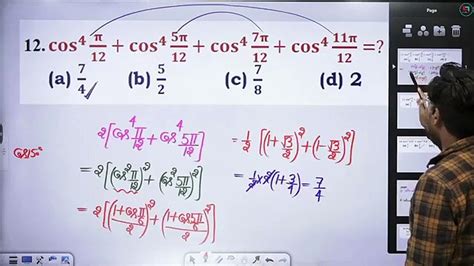 Page
12. cos⁴ π/12 + cos⁴ 5π/12 + cos⁴ 7π/12 + cos⁴ 11π/12 = ?
(a) 7/4 (b) 5/2 (c) 7/8 (d) 2
2[cos⁴ π/12 + cos⁴ 5π/12]
= 2[(cos² π/12)² + (cos² 5π/12)²]
= 2[((1+cos π/6)/2)² + ((1+cos 5π/6)/2)²]
= 1/2 [(1+√3/2)² + (1-√3/2)²]
= 1/2 × 2(1+3/4) = 7/4